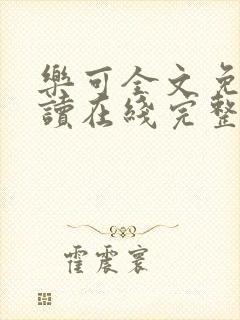 樂可全文免
讀在綫完整
霍震寰